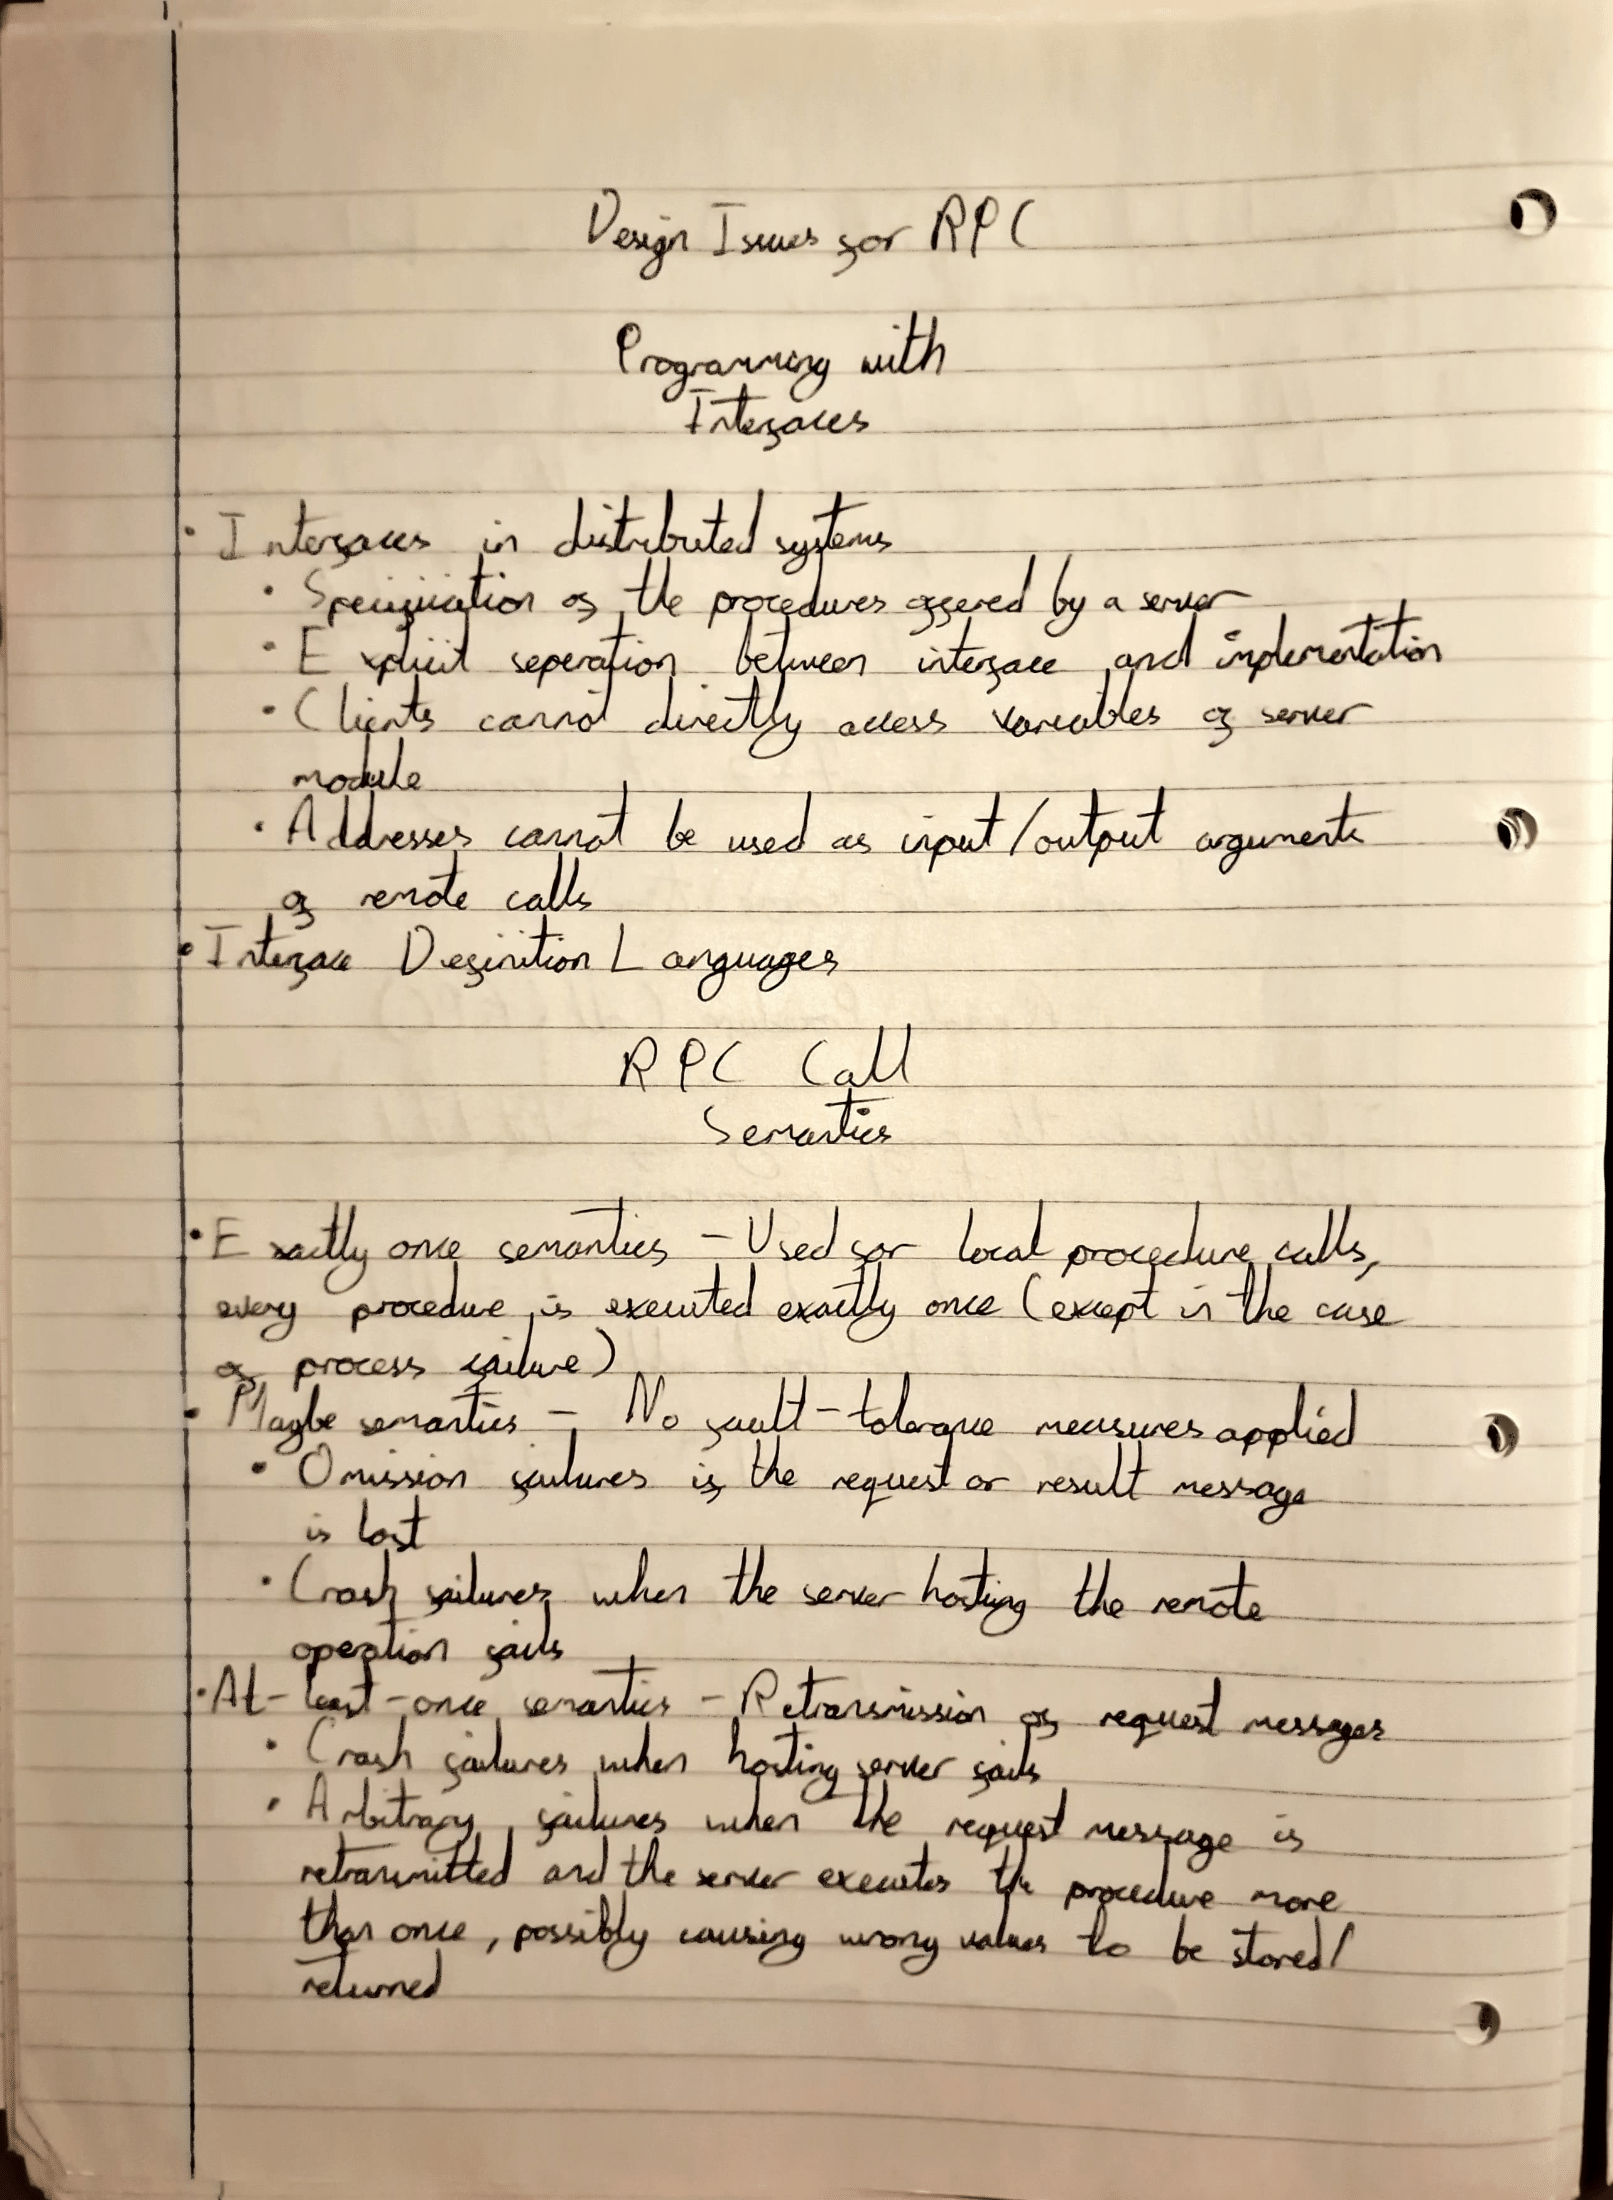 Design Issues for RPC
Programming with
Interfaces
• Interfaces in distributed systems
• Specification of the procedures offered by a server
• Explicit seperation between interface and implementation
• Clients cannot directly access variables of server
module
• Addresses cannot be used as input/output arguments
of remote calls
• Interface Definition Languages
RPC Call
Semantics
• Exactly once semantics - Used for local procedure calls,
every procedure is executed exactly once (except in the case
of process failure)
• Maybe semantics - No fault-tolerance measures applied
• Omission failures if the request or result message
is lost
• Crash failures when the server hosting the remote
operation fails
• At-least-once semantics - Retransmission of request messages
• Crash failures when hosting server fails
• Arbitrary failures when the request message is
retransmitted and the server executes the procedure more
than once, possibly causing wrong values to be stored/
returned